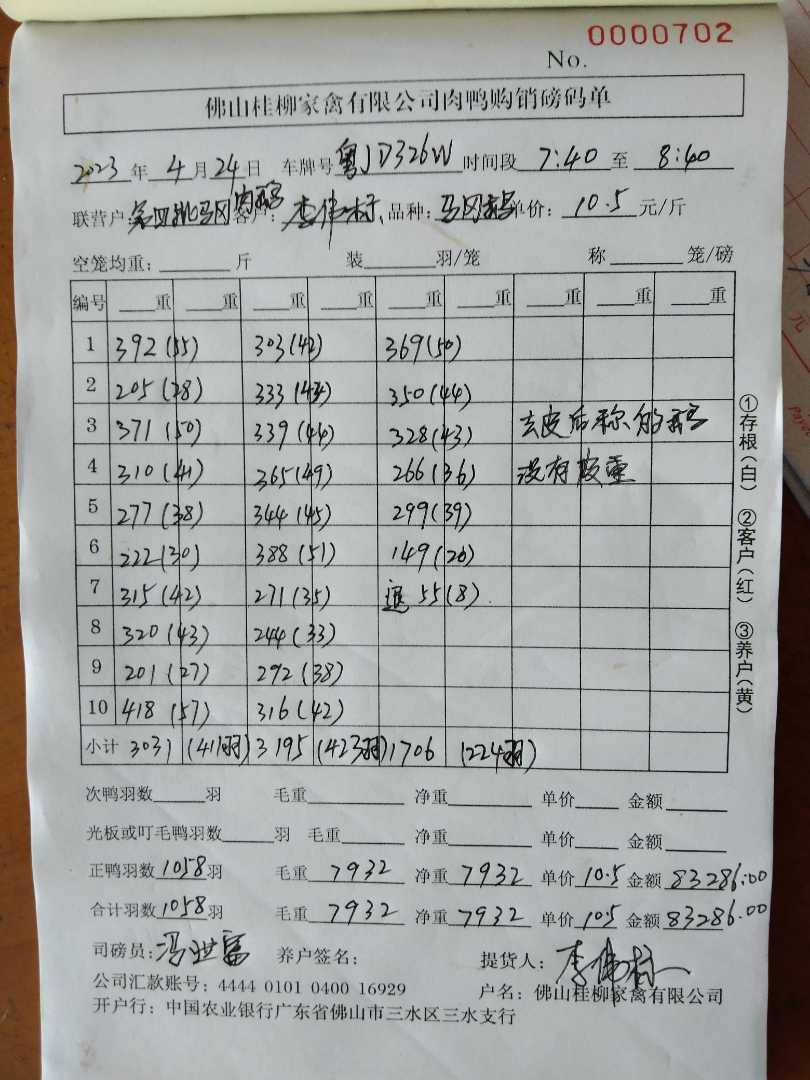 No. 0000702
佛山桂柳家禽有限公司肉鸭购销磅码单
2023年 4月24日 车牌号 粤JD326W 时间段 7:40 至 8:40
联营户: 马冈 客户: 李伟标 品种: 马冈鹅 单价: 10.5 元/斤
空笼均重: 斤 装 羽/笼 称 笼/磅
编号 重 重 重 重 重 重 重 重 重
1 392(55) 303(42) 369(50)
2 205(28) 333(44) 350(44)
3 371(50) 339(44) 328(43) 去皮后称的鹅
4 310(41) 365(49) 266(36) 没有皮重
5 277(38) 344(45) 299(39)
6 222(30) 388(51) 149(20)
7 315(42) 271(35) 退 55(8)
8 320(43) 244(33)
9 201(27) 292(38)
10 418(57) 316(42)
小计 3031 (411羽) 3195 (423羽) 1706 (224羽)
次鸭羽数 羽 毛重 净重 单价 金额
光板或叮毛鸭羽数 羽 毛重 净重 单价 金额
正鸭羽数1058羽 毛重 7932 净重 7932 单价 10.5 金额 83286.00
合计羽数1058羽 毛重 7932 净重 7932 单价 10.5 金额 83286.00
司磅员: 冯世富 养户签名: 提货人: 李伟标
公司汇款账号: 4444 0101 0400 16929 户名: 佛山桂柳家禽有限公司
开户行: 中国农业银行广东省佛山市三水区三水支行
①存根(白) ②客户(红) ③养户(黄)